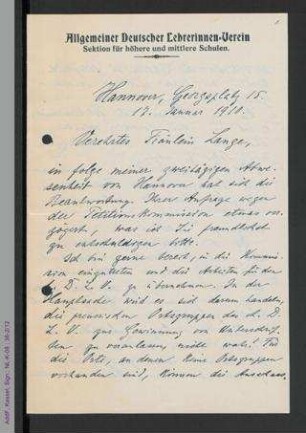 Allgemeiner Deutscher Lehrerinnen-Verein
Sektion für höhere und mittlere Schulen.
Hannover, Georgsplatz 15.
Januar 1911.
Verehrtes Fräulein Lange,
in folge meiner zweitägigen Abwe-
senheit von Hannover hat sich die
Beantwortung Ihrer Anfrage wegen
der Petitionskommission etwas ver-
zögert, was ich Sie freundlichst
zu entschuldigen bitte.
Ich bin gerne bereit, in die Kommis-
sion einzutreten und die Arbeiten für den
A. D. L. V. zu übernehmen. In der
Hauptsache wird es sich darum handeln,
die preussischen Ortsgruppen des A. D.
L. V. zur Gewinnung von Unterschrif-
ten zu veranlassen, nicht wahr? Für
die Orte, an denen keine Ortsgruppen
vorhanden sind, können die
AddF, Kassel, Sign.